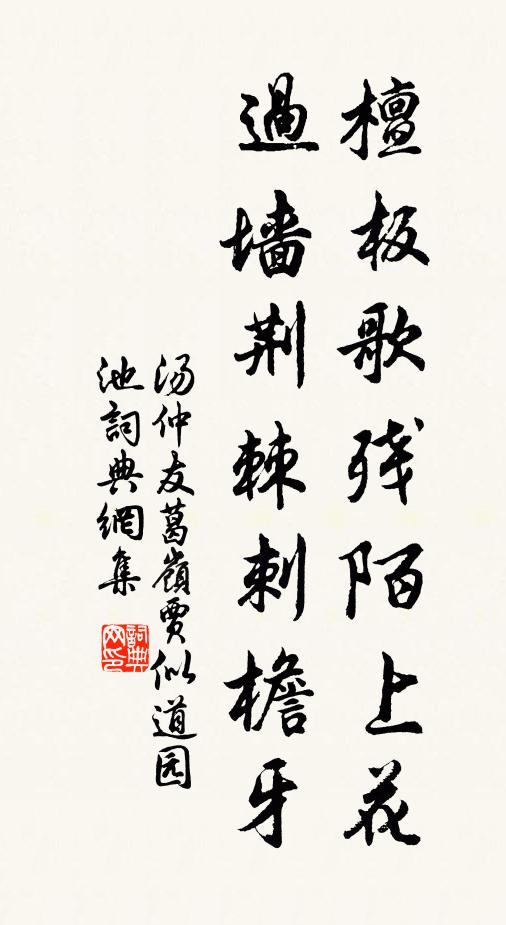 檀板歌残陌上花
過墙荆棘刺檐牙
汤仲友葛嶺賈似道园
池詞典網集
詞典
网印